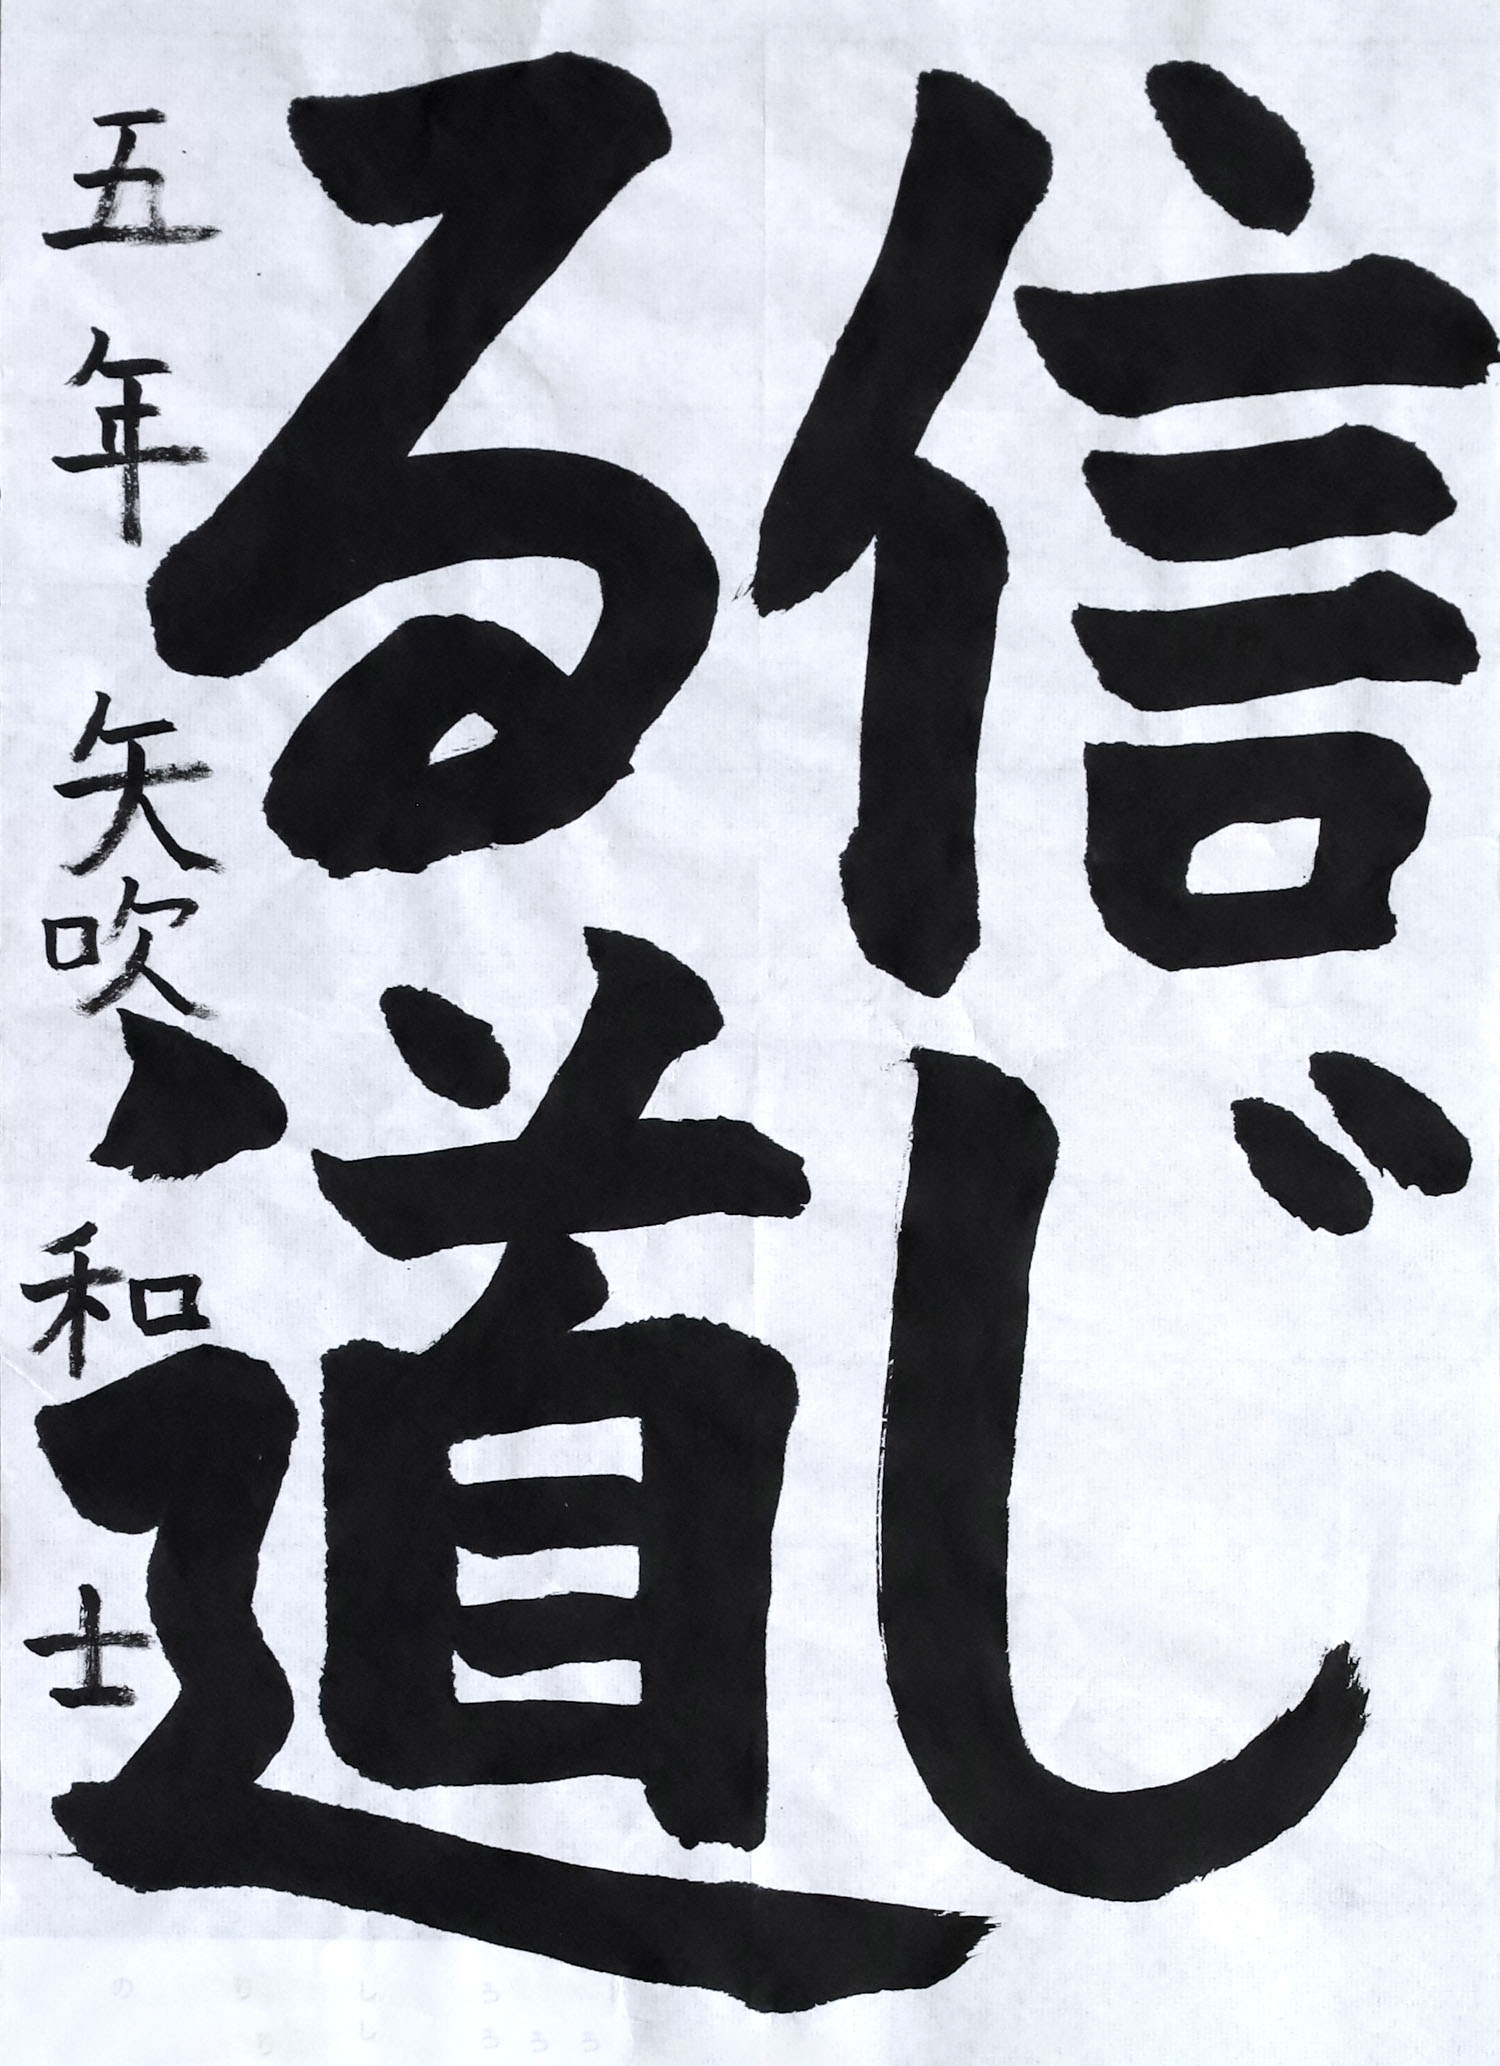 信じ
る道
五年 矢吹 和士